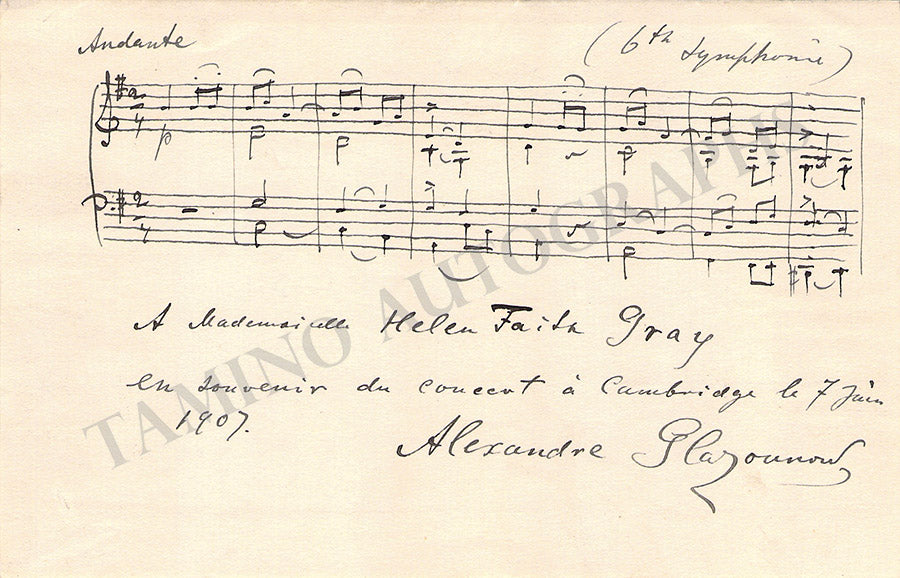 Andante
(6th Symphonie)
p
A Mademoiselle Helen Faith Gray
en souvenir du concert à Cambridge le 7 Juin
1907.
Alexandre Glazounow
TAMINO AUTOGRAPHS